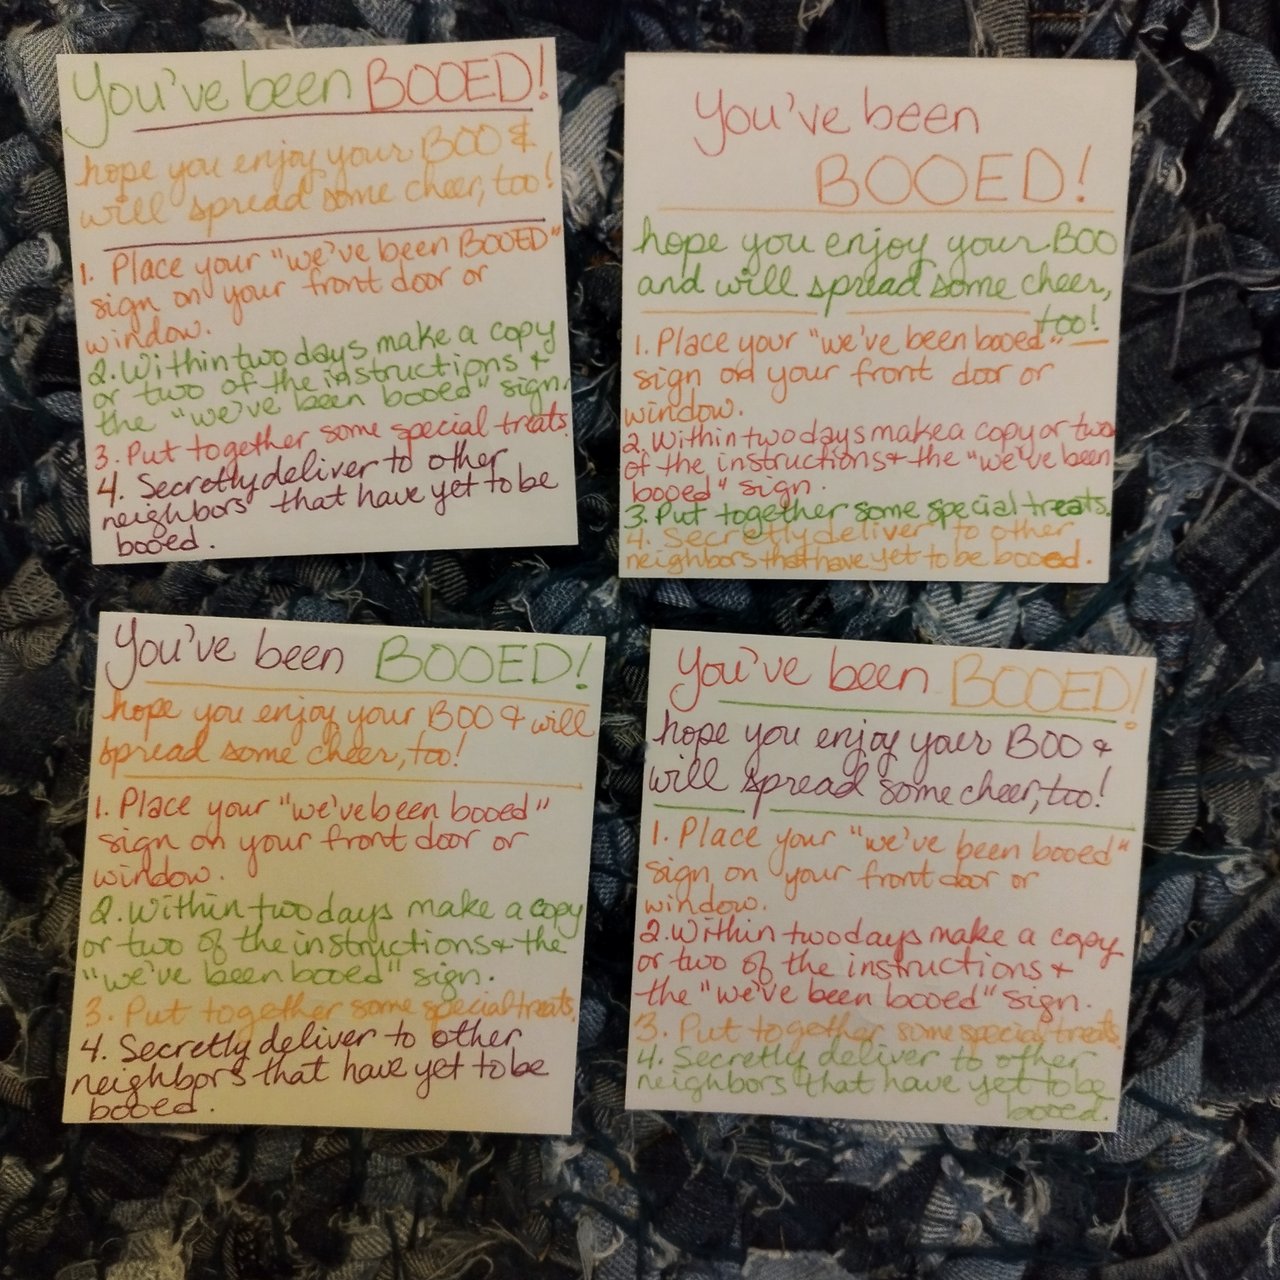 You've been BOOED!
hope you enjoy your BOO &
will spread some cheer, too!
1. Place your "we've been BOOED"
sign on your front door or
window.
2. Within two days make a copy
or two of the instructions &
the "we've been booed" sign.
3. Put together some special treats.
4. Secretly deliver to other
neighbors that have yet to be
booed.
You've been
BOOED!
hope you enjoy your BOO
and will spread some cheer,
too!
1. Place your "we've been booed"
sign on your front door or
window.
2. Within two days make a copy or two
of the instructions & the "we've been
booed" sign.
3. Put together some special treats.
4. Secretly deliver to other
neighbors that have yet to be booed.
You've been BOOED!
hope you enjoy your BOO & will
spread some cheer, too!
1. Place your "we've been booed"
sign on your front door or
window.
2. Within two days make a copy
or two of the instructions & the
"we've been booed" sign.
3. Put together some special treats.
4. Secretly deliver to other
neighbors that have yet to be
booed.
You've been BOOED!
hope you enjoy your BOO &
will spread some cheer, too!
1. Place your "we've been booed"
sign on your front door or
window.
2. Within two days make a copy
or two of the instructions &
the "we've been booed" sign.
3. Put together some special treats.
4. Secretly deliver to other
neighbors that have yet to be
booed.